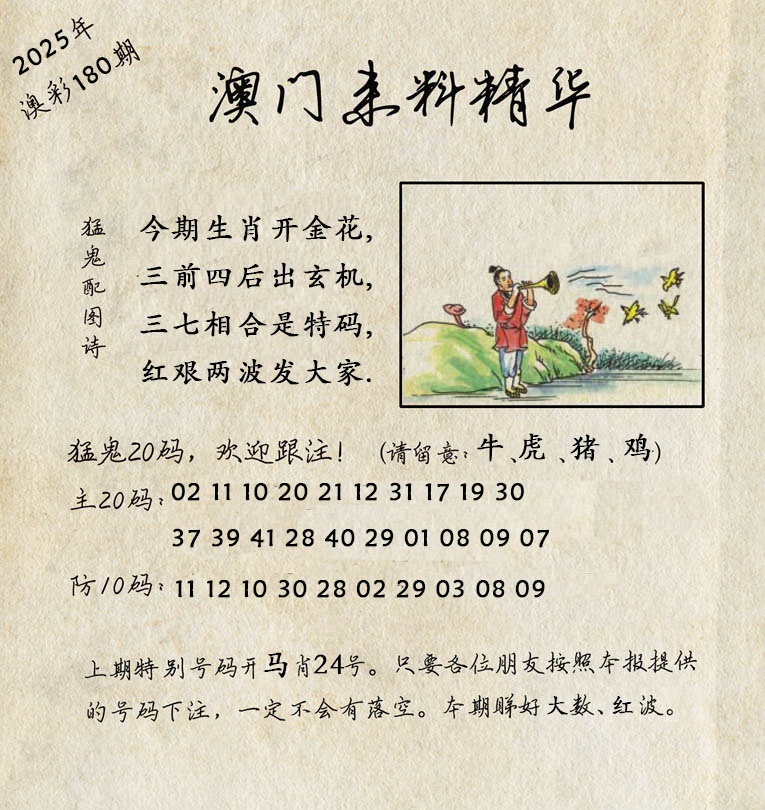 2025年
澳彩180期
澳门来料精华
猛鬼配图诗
今期生肖开金花,
三前四后出玄机,
三七相合是特码,
红艰两波发大家.
猛鬼20码，欢迎跟注！（请留意：牛、虎、猪、鸡）
主20码：02 11 10 20 21 12 31 17 19 30
37 39 41 28 40 29 01 08 09 07
防10码：11 12 10 30 28 02 29 03 08 09
上期特别号码开马肖24号。只要各位朋友按照本报提供
的号码下注，一定不会有落空。本期睇好大数、红波。